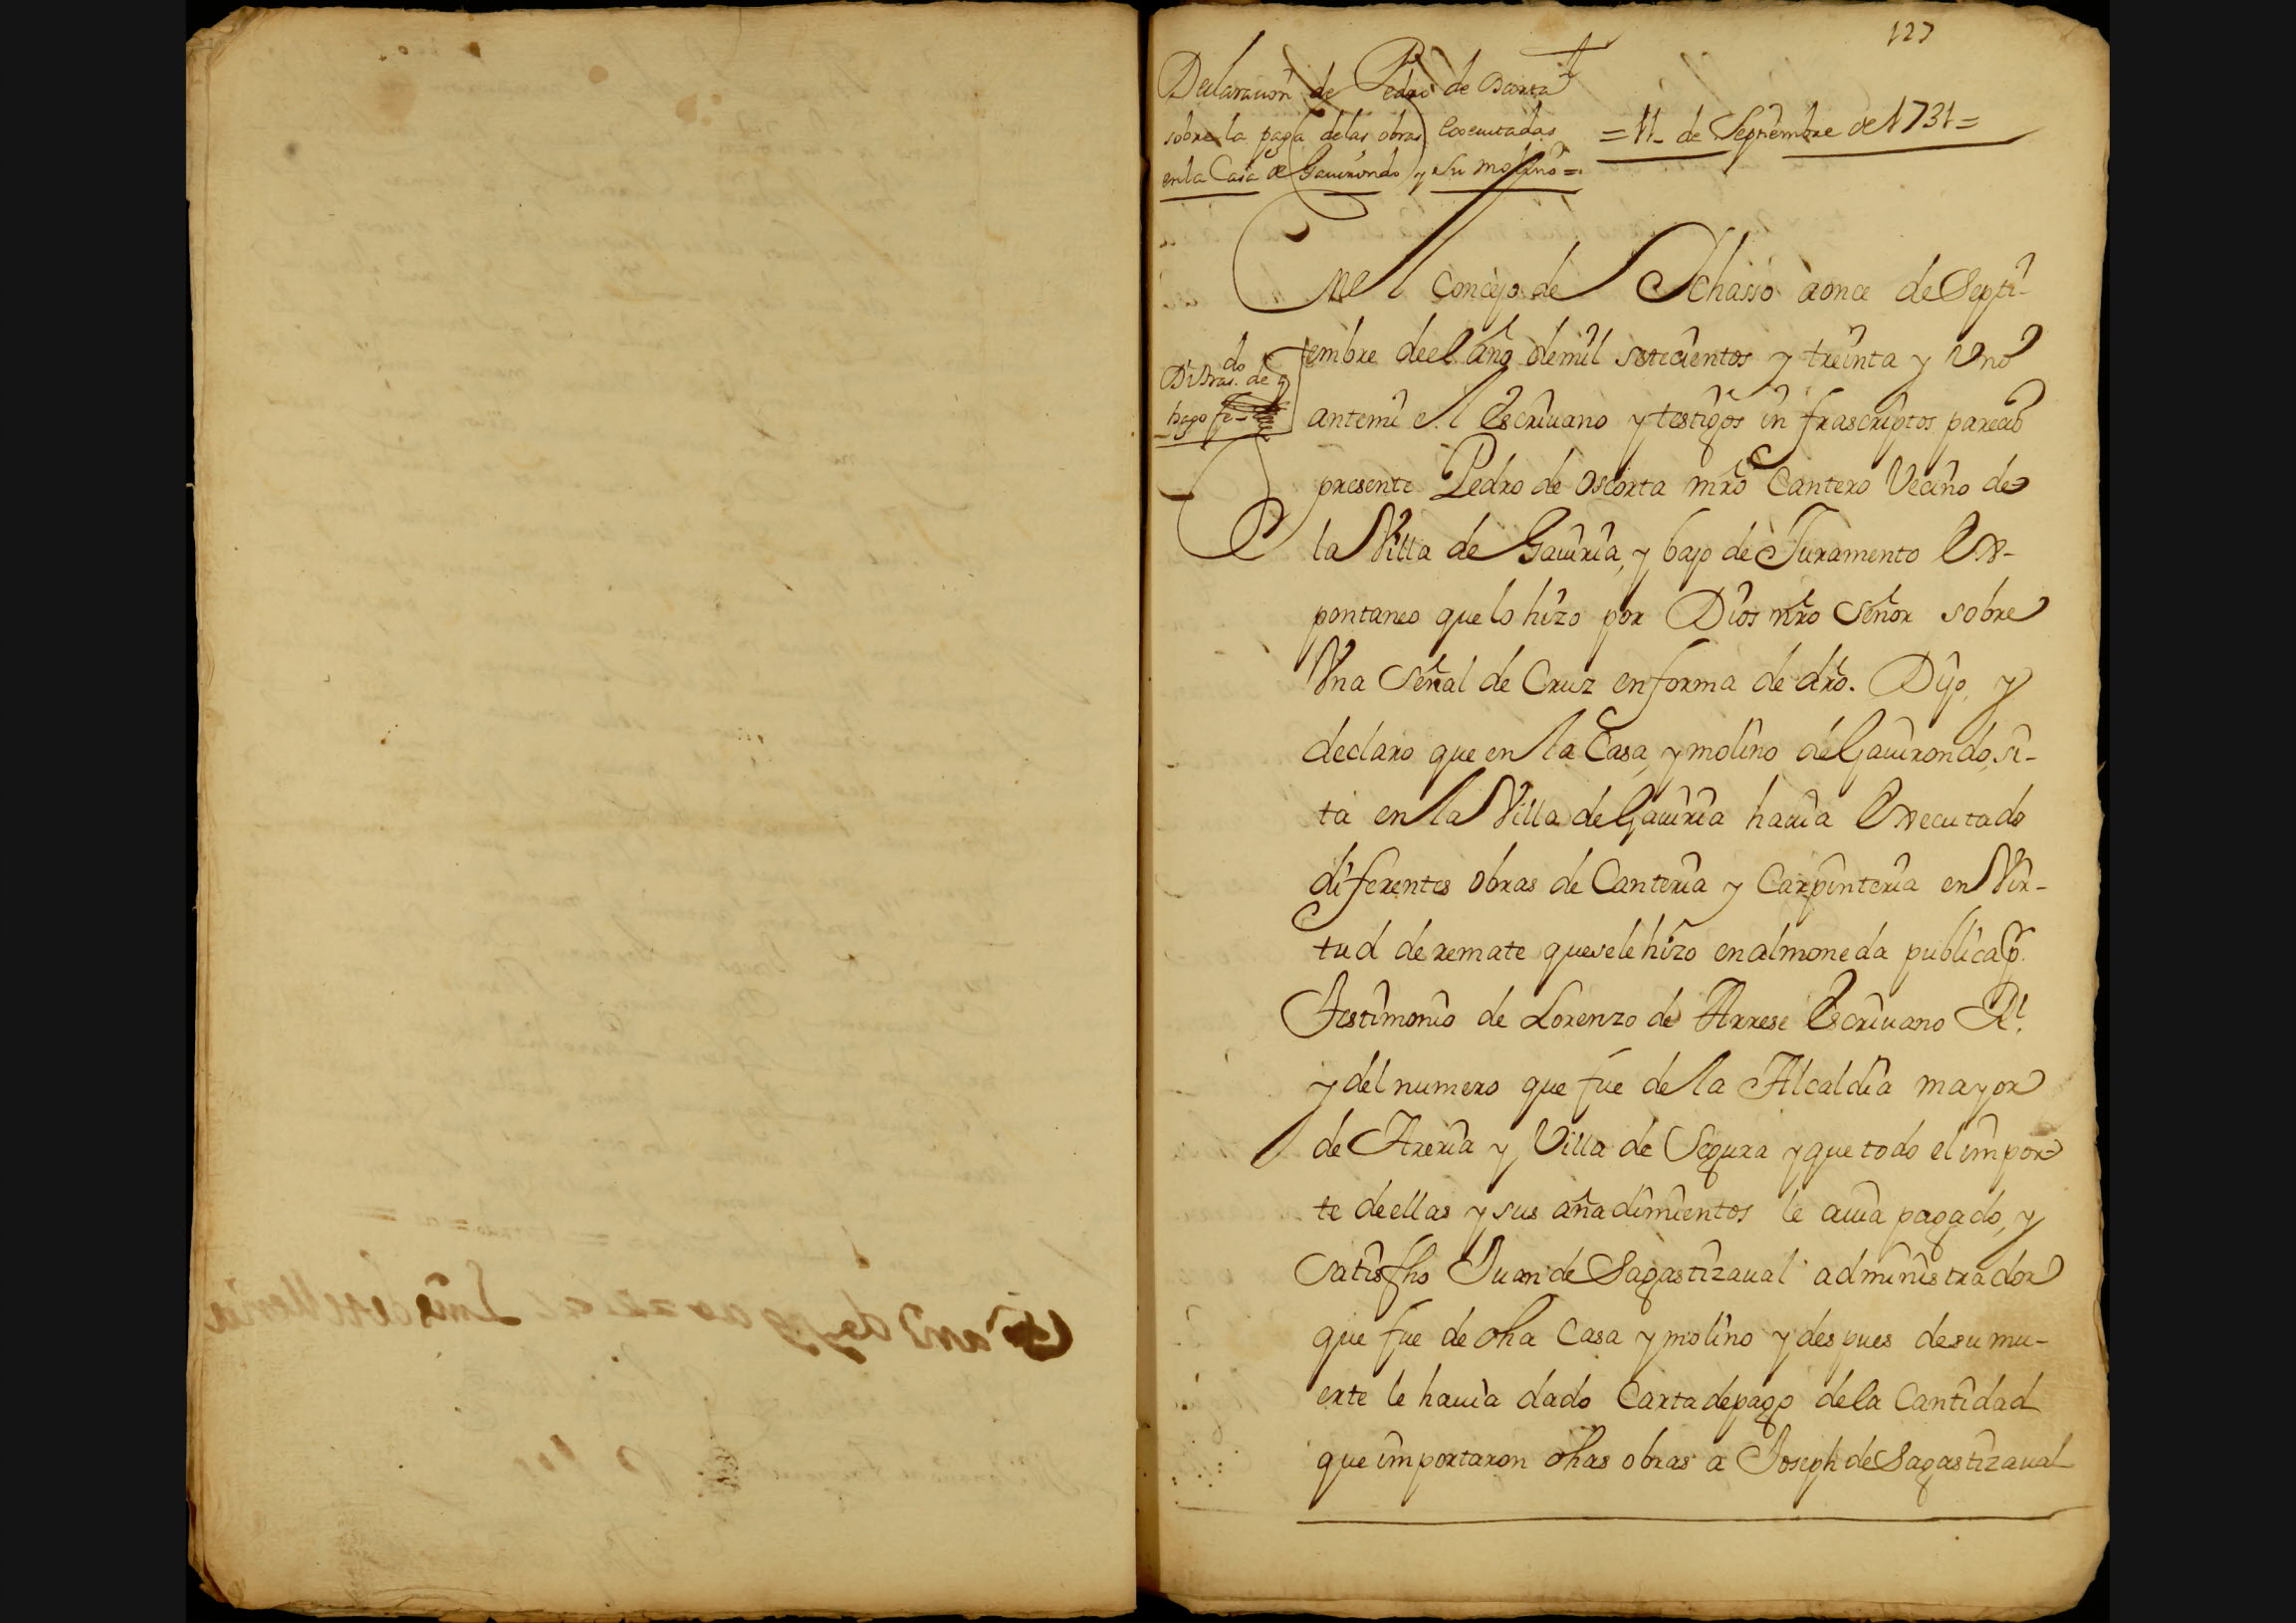 127
Declaracion de Pedro de Oscorta
sobre la paga delas obras Executadas
enla Casa de Gauirondo y su molino =
= 11 - de Septiembre de 1731 =
En el Concejo de Ichasso à once de Septi-
embre de el año de mil setecientos y treinta y Uno
ante mi el Escriuano y testigos infrascriptos parecio
presente Pedro de Oscorta mro Cantero Vecino de
la Villa de Gauiria, y bajo de Juramento Ex-
pontaneo que lo hizo por Dios nro Señor sobre
Vna Señal de Cruz en forma de dro. Dijo, y
declaro que en la Casa, y molino de Gauirondo, si-
ta en la Villa de Gauiria hauia Executado
diferentes obras de Canteria y Carpinteria en Vir-
tud de remate que se le hizo en almoneda publica p.
Testimonio de Lorenzo de Arrese Escriuano Rl.
y del numero que fue de la Alcaldia mayor
de Areria y Villa de Segura y que todo el impor-
te de ellas y sus añadimientos le auia pagado, y
satisfho Juan de Sagastizaual administrador
que fue de dha Casa y molino y despues de su mu-
erte le hauia dado Carta de pago de la Cantidad
que importaron dhas obras a Joseph de Sagastizaual
do
hago fe